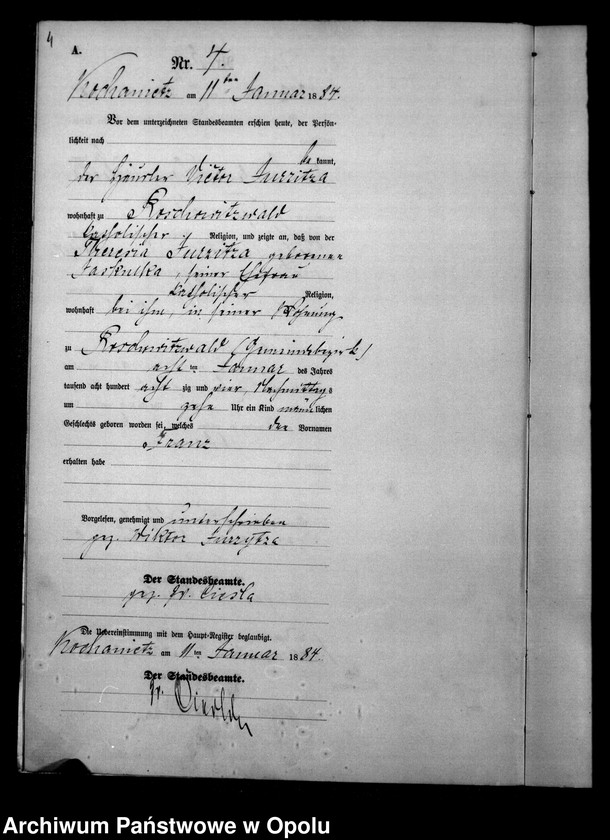 4
A.
Nr. 4.
Kochanietz am 11ten Januar 1884.
Vor dem unterzeichneten Standesbeamten erschien heute, der Persön-
lichkeit nach
be kannt,
der Häusler Victor Jurzitza
wohnhaft zu Roschowitzwald
katholischer Religion, und zeigte an, daß von der
Theresia Jurzitza geborenen
seiner Ehefrau
katholischer Religion,
wohnhaft bei ihm, in seiner Wohnung
zu Roschowitzwald (Gemeindebezirk)
am acht ten Januar des Jahres
tausend acht hundert acht zig und vier, Nachmittags
um zehn Uhr ein Kind männlichen
Geschlechts geboren worden sei, welches den Vornamen
Franz
erhalten habe
Vorgelesen, genehmigt und unterschrieben
gez. Wiktor Jurzytza
Der Standesbeamte.
gez. Fr. Ciesla
Die Uebereinstimmung mit dem Haupt-Register beglaubigt.
Kochanietz am 11ten Januar 1884.
Der Standesbeamte.
Archiwum Państwowe w Opolu